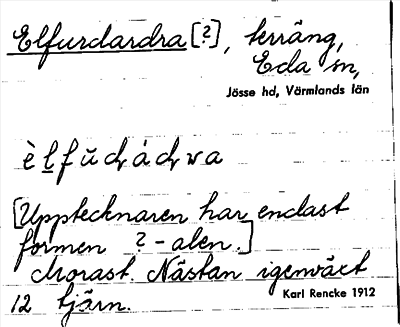 Elfurdardra [?], terräng,
Eda sn,
Jösse hd, Värmlands län
[Upptecknaren har endast
formen ? - alen.]
Morast. Nästan igenväxt
12 tjärn.
Karl Rencke 1912